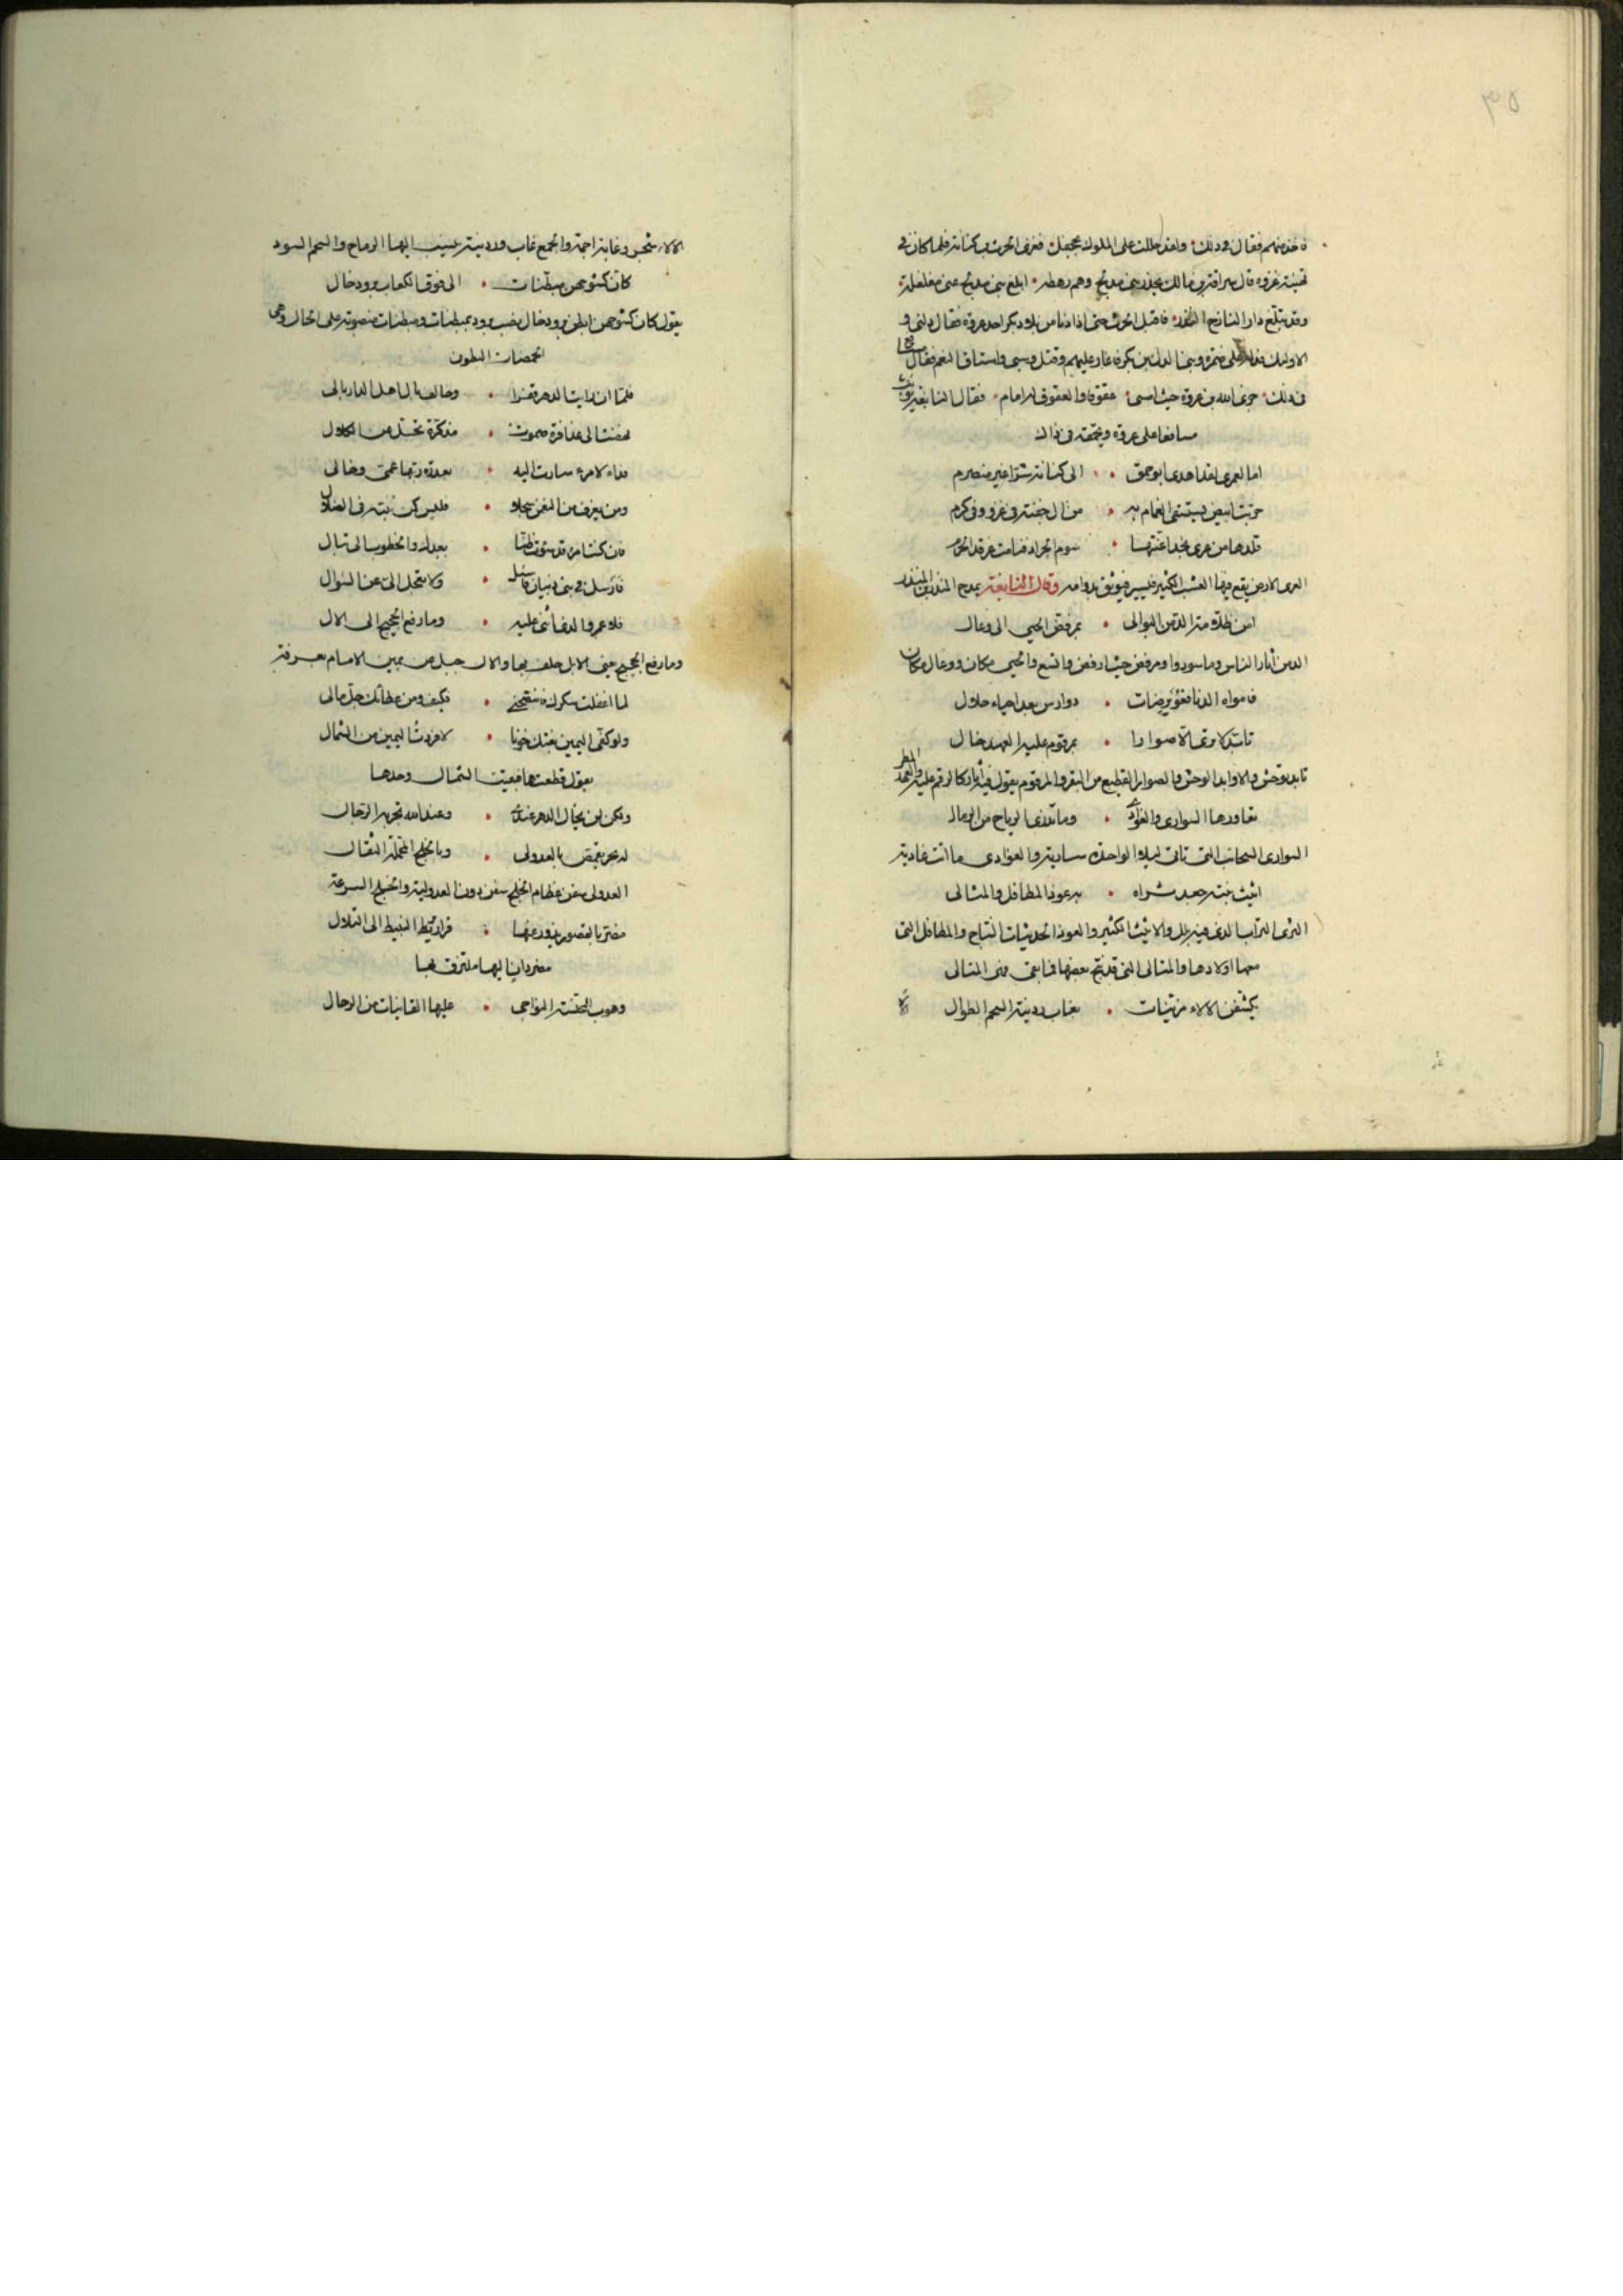 ٣٥
فاخذ منهم فقال في ذلك ولقد حللت على الملوك بجحفل فغزى الحرث كنانة فلما كان في
غزوه قال مالك بني مدلج وهم رهطه ابلغ بني مدلج عني مغلغلة
وقد تبلغ دار النازح فاقبل الحرث حتى اذا دنا من بلاد بكر احد عروة فقال دلني و
الا وليك على ضمرة وبني الدئل بن بكر فاغار عليهم وقتل وسبى واستاق النعم فقال
في ذلك جزى الله بن عروة حيث امسى عقوقا والعقوق له اثام فقال النابغة
على عروة في ذلك
اما لعمري لقد اهدى ابو حمق الى كنانة شرا غير منصرم
حربت ابيض يستسقى الغمام به من ال جفنة في عز وفي كرم
من عرى نجد اعنتها سوم الجراد
العرى الارض يقع فيها العشب الكثير وقال النابغة يمدح المنذر بن المنذر
امن ظلامة الدمن البوالي بمرفض الحبي الى وعال
الدمن اثار الناس وما سودوا ومرفض حيث ارفض واتسع والحبي مكان ووعال مكان
فامواه الدنا فعويرضات دوارس بعد احياء حلال
تابد لا ترى الا صوارا بمرقوم عليه العهد خال
تابد توحش والاوابد الوحش والصوار القطيع من البقر والمرقوم يقول فيه اثار كالرقم عليه والعهد المطر
تعاورها السوارى والغوادى وما تذرى الرياح من الرمال
السوارى السحائب التي تاتي ليلا الواحدة سارية والغوادى ما اتت غادية
اثيث نبته جعد ثراه به عوذ المطافل والمتالى
الثرى التراب الذي فيه بلل والاثيث الكثير والعوذ الحديثات النتاج والمطافل التي
معها اولادها والمتالى التي قد نتج بعضها فما بقي فهي المتالى
يكشفن الالاء مزينات بغاب ردينة السحم الطوال
الالاء شجر وغابة اجمة والجمع غاب وردينة ينسب اليها الرماح والسحم السود
كان كشوحهن مبطنات الى فوق الكعاب برود خال
يقول كان كشوحهن ابطن برود خال نصب برود بمبطنات ومبطنات منصوبة على الحال وهي
الخمصات البطون
فلما ان رايت الدار قفرا وخالف بال اهل الدار بالي
نهضت الى عذافرة صموت مذكرة تجل عن الكلال
فداء لامرء سارت اليه بعذرة ربها عمي وخالي
ومن يغرف من النعمن سجلا فليس كمن يتيه في الضلال
فان كنت امرء قد سؤت ظنا بعبدك والخطوب الى تبال
فارسل في بني ذبيان فاسئل ولا تعجل الي عن السوال
فلا عمرو الذي اثنى عليه وما رفع الحجيج الى الال
وما رفع الحجيج يعني الابل حلف بها والال جبل عن يمين الامام بعرفة
لما اغفلت شكرك فانتصحني فكيف ومن عطائك جل مالي
ولو كفي اليمين بغتك خونا لافردت اليمين من الشمال
يقول قطعتها فبقيت الشمال وحدها
ولكن لن تخال الدهر عندي وعند الله تجربة الرجال
له بحر يقمص بالعدولي وبالخلج المحملة الثقال
العدولي سفن عظام الخلج سفن دون العدولية والخلج السرعة
مضر بالقصور يذود عنها قراقير النبيط الى التلال
مضر دان اليها ملتزق بها
وهوب للمخيسة النواجي عليها القانيات من الرحال